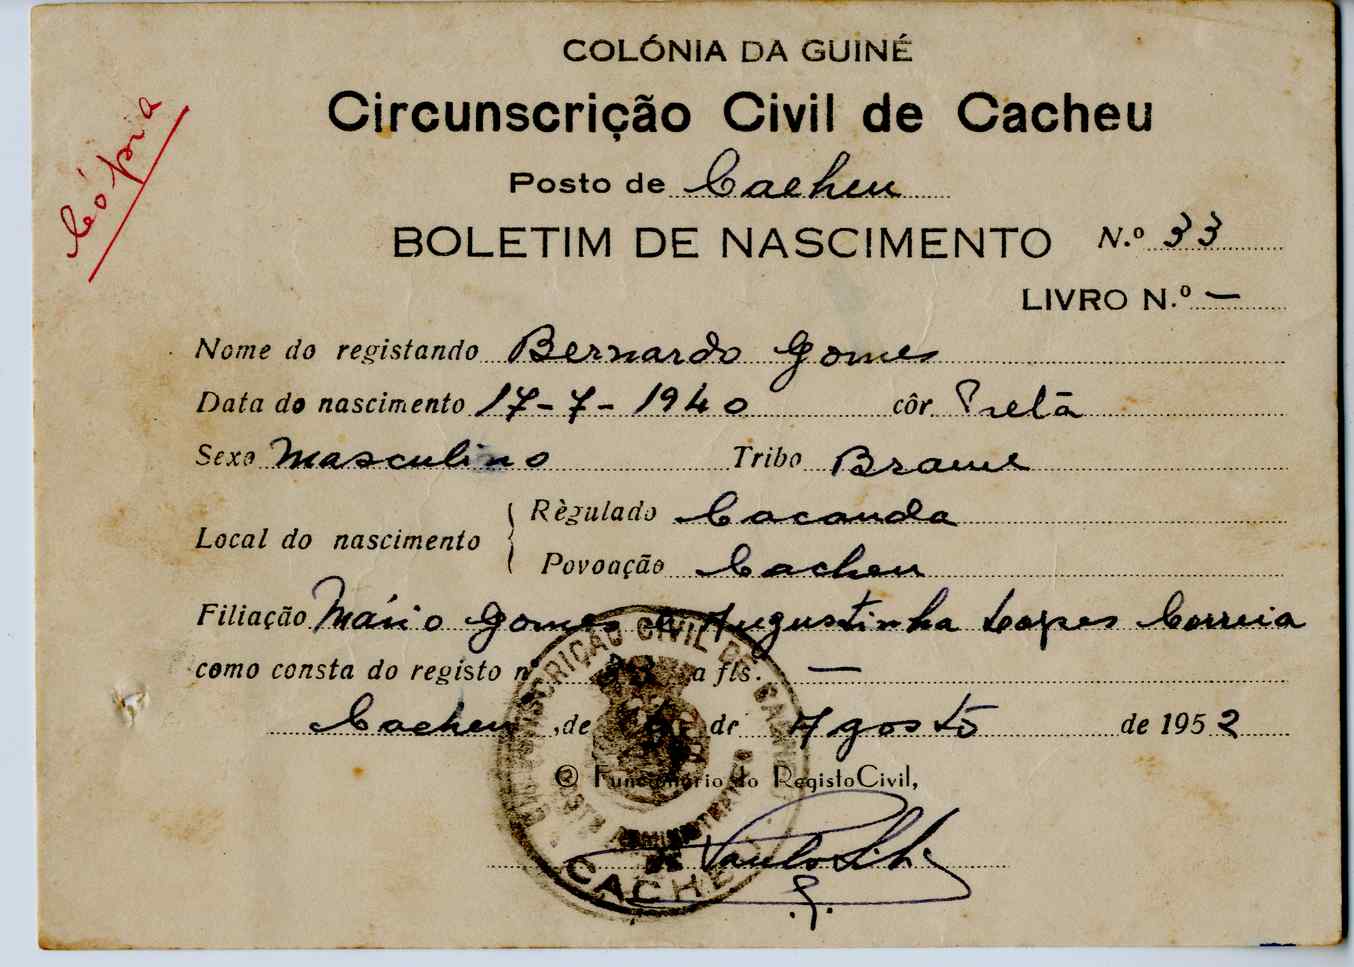 Cópia
COLÓNIA DA GUINÉ
Circunscrição Civil de Cacheu
Posto de Cacheu
BOLETIM DE NASCIMENTO N.º 33
LIVRO N.º —
Nome do registando Bernardo Gomes
Data do nascimento 17-7-1940 côr Preta
Sexo Masculino Tribo Brame
Local do nascimento
Règulado Cacanda
Povoação Cacheu
Filiação Mário Gomes e Augustinha Lopes Correia
como consta do registo nº a fls. —
Cacheu, de de Agosto de 1952
O Funcionário do Registo Civil,
CIRCUNSCRIÇÃO CIVIL DE CACHEU
POSTO ADMINISTRATIVO
DE
CACHEU